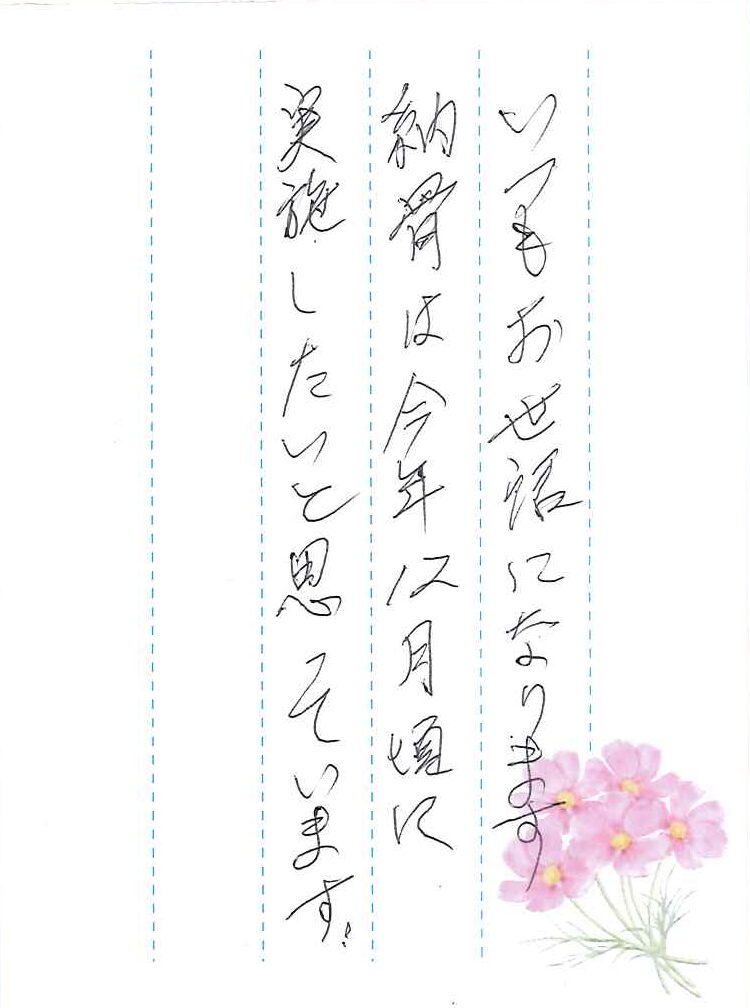 いつもお世話になります
納骨は今年12月頃に
実施したいと思っています。